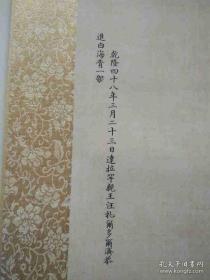 乾隆四十八年二月二十三日達拉罕親王旺札爾多爾濟恭
進白海青一架